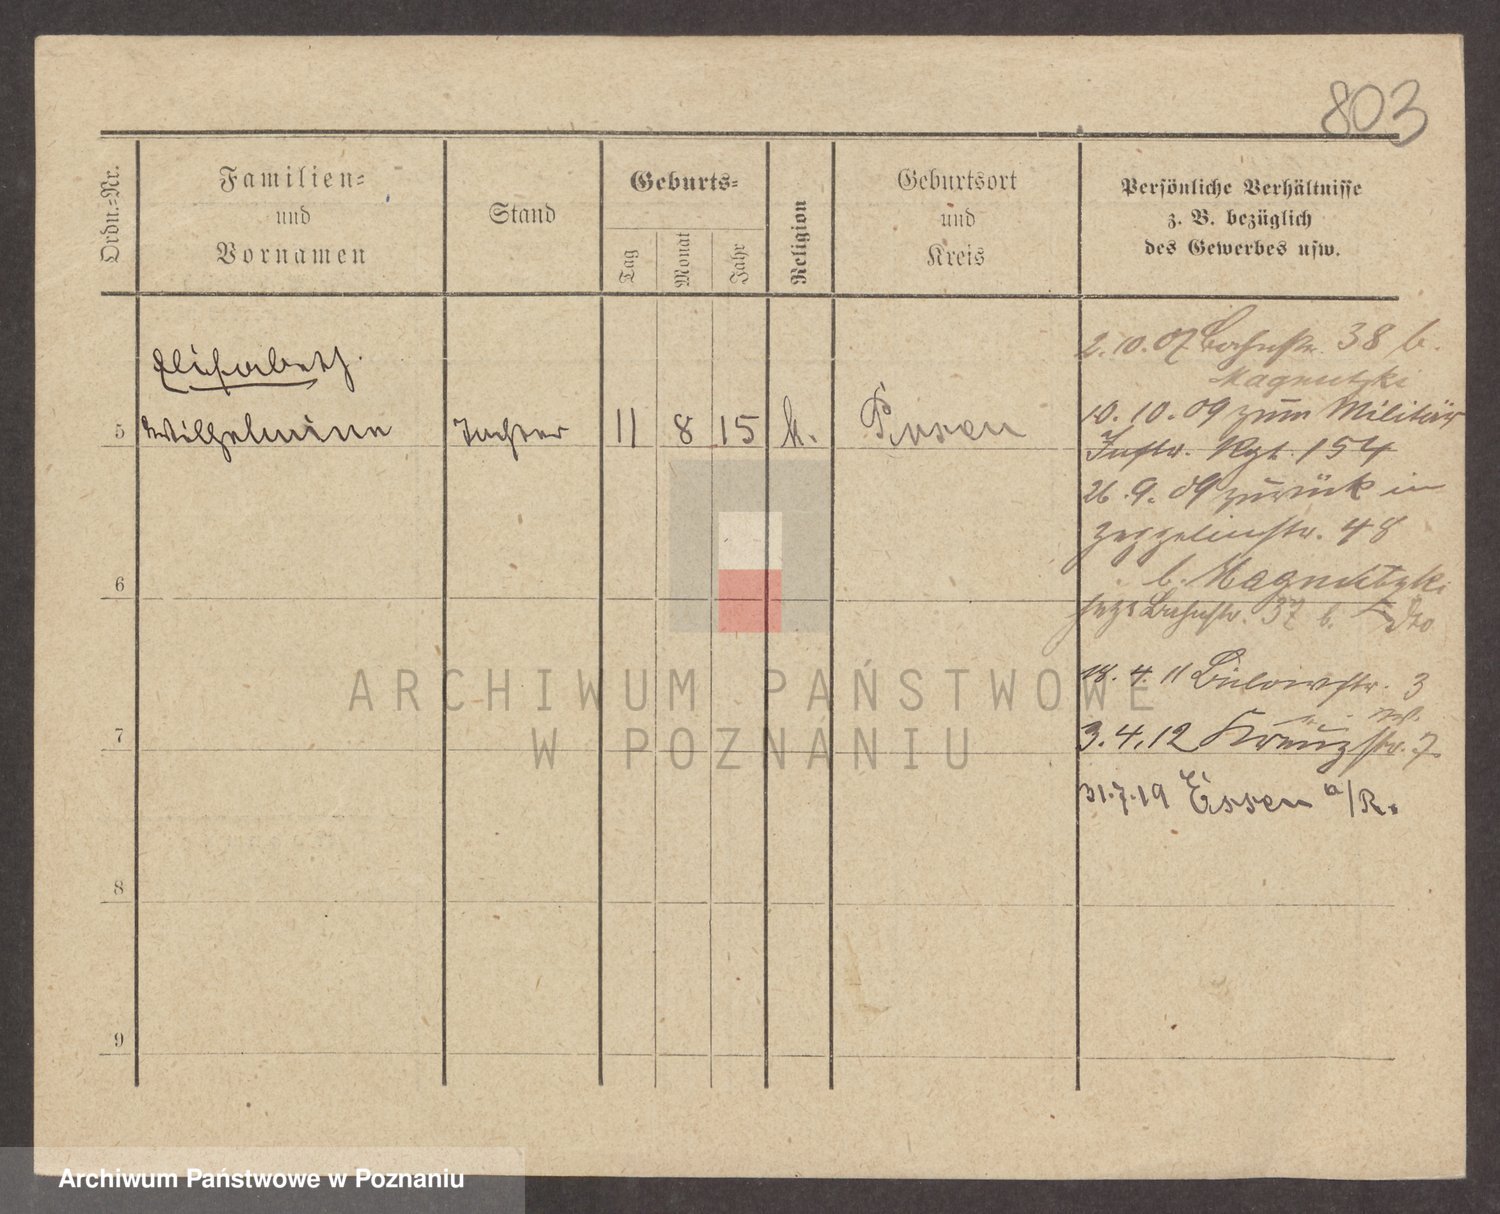 803
Ordn.-Nr.
Familien-
und
Vornamen
Stand
Geburts-
Tag
Monat
Jahr
Religion
Geburtsort
und
Kreis
Persönliche Verhältnisse
z. B. bezüglich
des Gewerbes usw.
Elisabeth
5 Wilhelmine Tochter 11 8 15 k. Posen
2.10.07 Bahnstr. 38 b.
10.10.09 zum Militär
Inftr. Rgt. 154
26.9.09 zurück in
Zeppelinstr. 48
jetzt Bahnstr. 37 b.
18.4.11 Bülowstr. 3
3.4.12 Kreuzstr. 7
31.7.19 Essen a/R.
6
7
8
9
ARCHIWUM PAŃSTWOWE
W POZNANIU
Archiwum Państwowe w Poznaniu